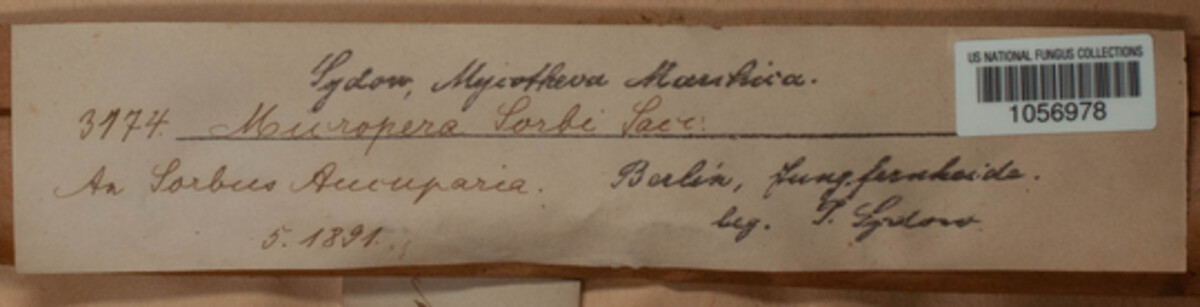 Sydow, Mycotheca Marchica.
US NATIONAL FUNGUS COLLECTIONS
1056978
3174. Micropera Sorbi Sacc.
An Sorbus Aucuparia. Berlin, Jungfernheide.
5. 1891. leg. P. Sydow